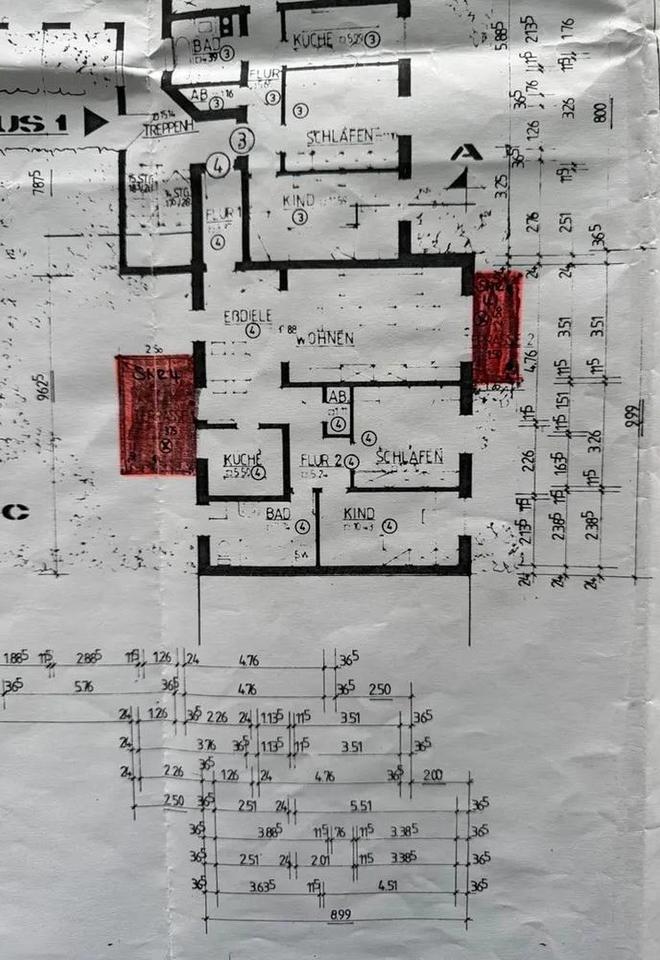 BAD
③
KÜCHE ③
FLUR
③
AB
③
US 1
TREPPENH
③
③
SCHLAFEN
④
A
KIND
③
FLUR 1
④
EßDIELE
④
WOHNEN
2.50
AB
④
④
KÜCHE
5.50 ④
FLUR 2 ④
SCHLAFEN
C
BAD
④
KIND
④
7.87⁵
9.62⁵
5.88⁵ 11⁵ 2.13⁵ 1.76
36⁵ 76 11⁵
1.26 3.26 8.00
36⁵ 11⁵
3.25
2.76 2.51 36⁵
24 24
4.76 3.51 3.51
11⁵ 11⁵
11⁵ 1.51 9.99
2.26 1.63⁵ 3.26
11⁵ 11⁵ 11⁵
2.13⁵ 2.38⁵ 2.38⁵
24 24 24
1.88⁵ 11⁵ 2.88⁵ 11⁵ 1.26 24 4.76 36⁵
36⁵ 5.76 36⁵ 4.76 36⁵ 2.50
24 1.26 36⁵ 2.26 24 1.13⁵ 11⁵ 3.51 36⁵
24 3.76 36⁵ 1.13⁵ 11⁵ 3.51 36⁵
24 2.26 36⁵ 1.26 24 4.76 36⁵ 2.00
2.50 36⁵ 2.51 24 5.51 36⁵
36⁵ 3.88⁵ 11⁵ 76 11⁵ 3.38⁵ 36⁵
36⁵ 2.51 24 2.01 11⁵ 3.38⁵ 36⁵
36⁵ 3.63⁵ 11⁵ 4.51 36⁵
8.99